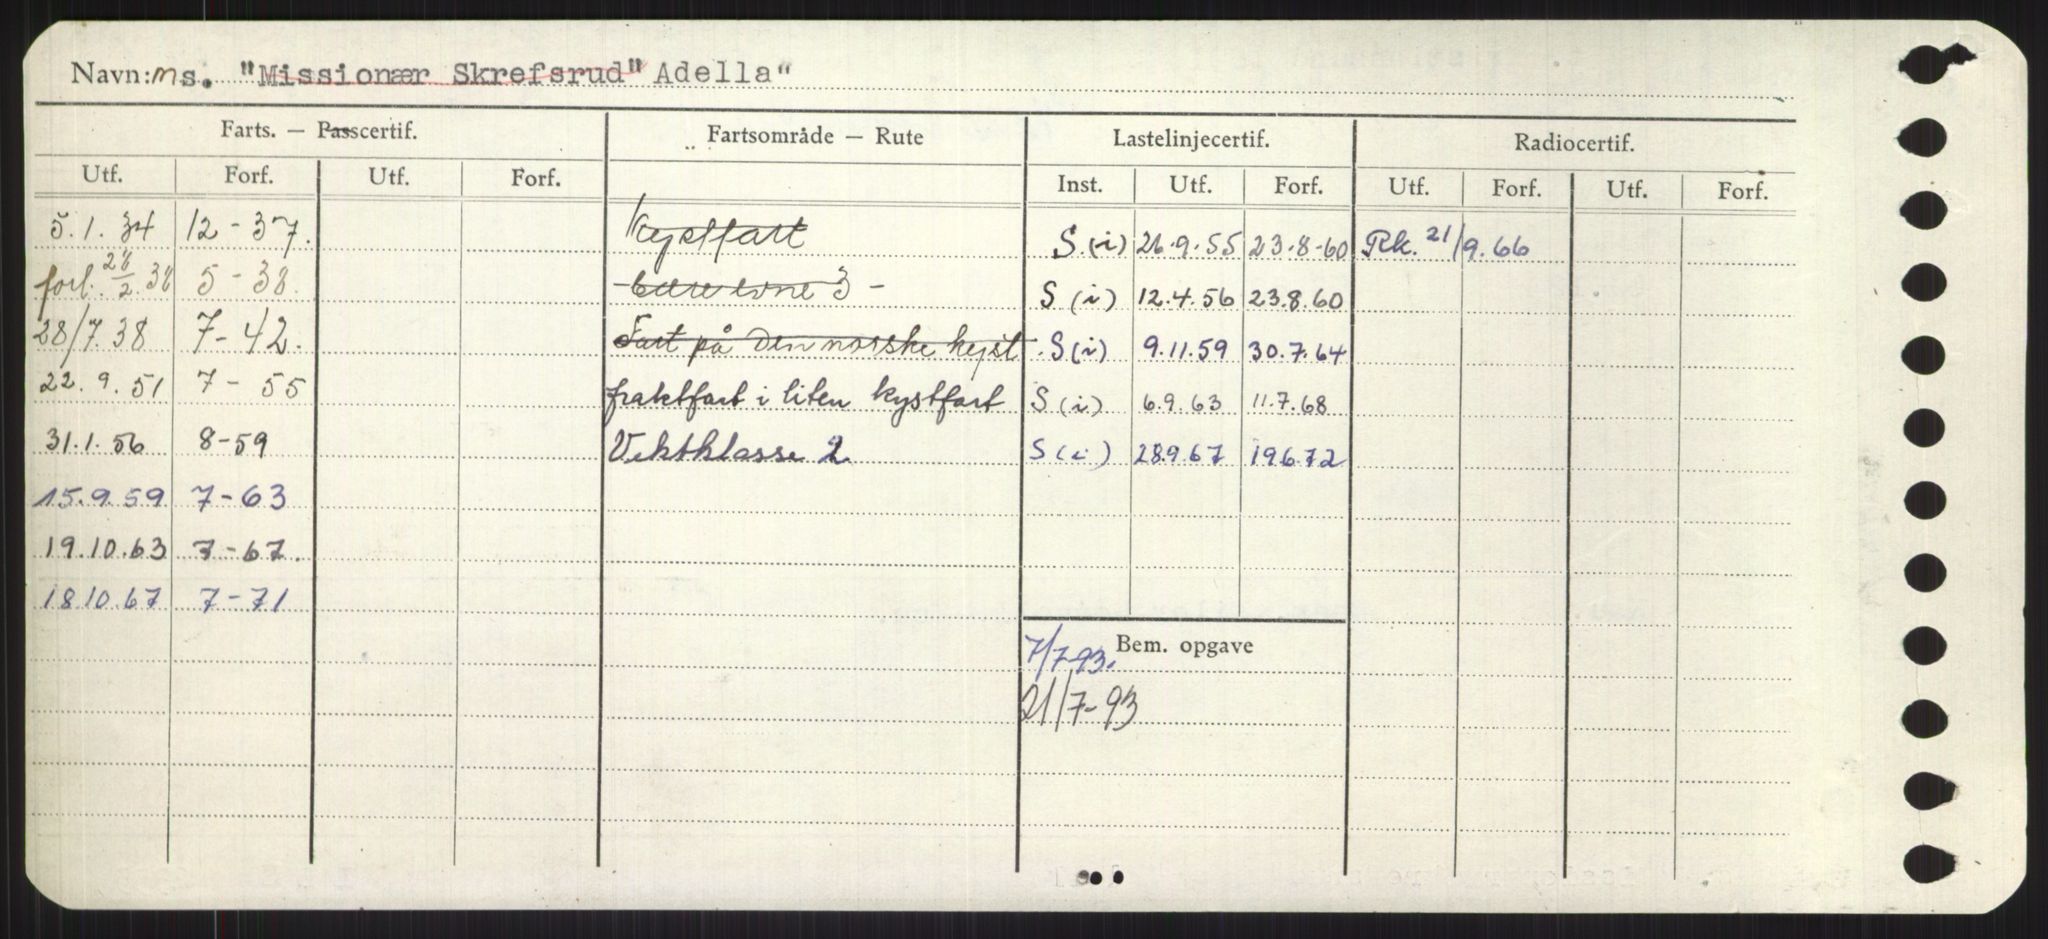 Navn: ms. "Missionær Skrefsrud" Adella"
Farts. — Passcertif. Fartsområde — Rute Lastelinjecertif. Radiocertif.
Utf. Forf. Utf. Forf. Inst. Utf. Forf. Utf. Forf. Utf. Forf.
5.1.34 12-37. Kystfart S.(i) 26.9.55 23.8-60 Rk. 21/9.66
forl. 28/2.38 5-38. 3 - S (i) 12.4.56 23.8.60
28/7.38 7-42. Fart på den norske kyst. S(i) 9.11.59 30.7.64
22.9.51 7-55 fraktfart i liten kystfart S (i) 6.9.63 11.7.68
31.1.56 8-59 Vektklasse 2 S(i) 28.9.67 19.6.72
15.9.59 7-63
19.10.63 7-67.
18.10.67 7-71
7/7-93. Bem. opgave
21/7-93